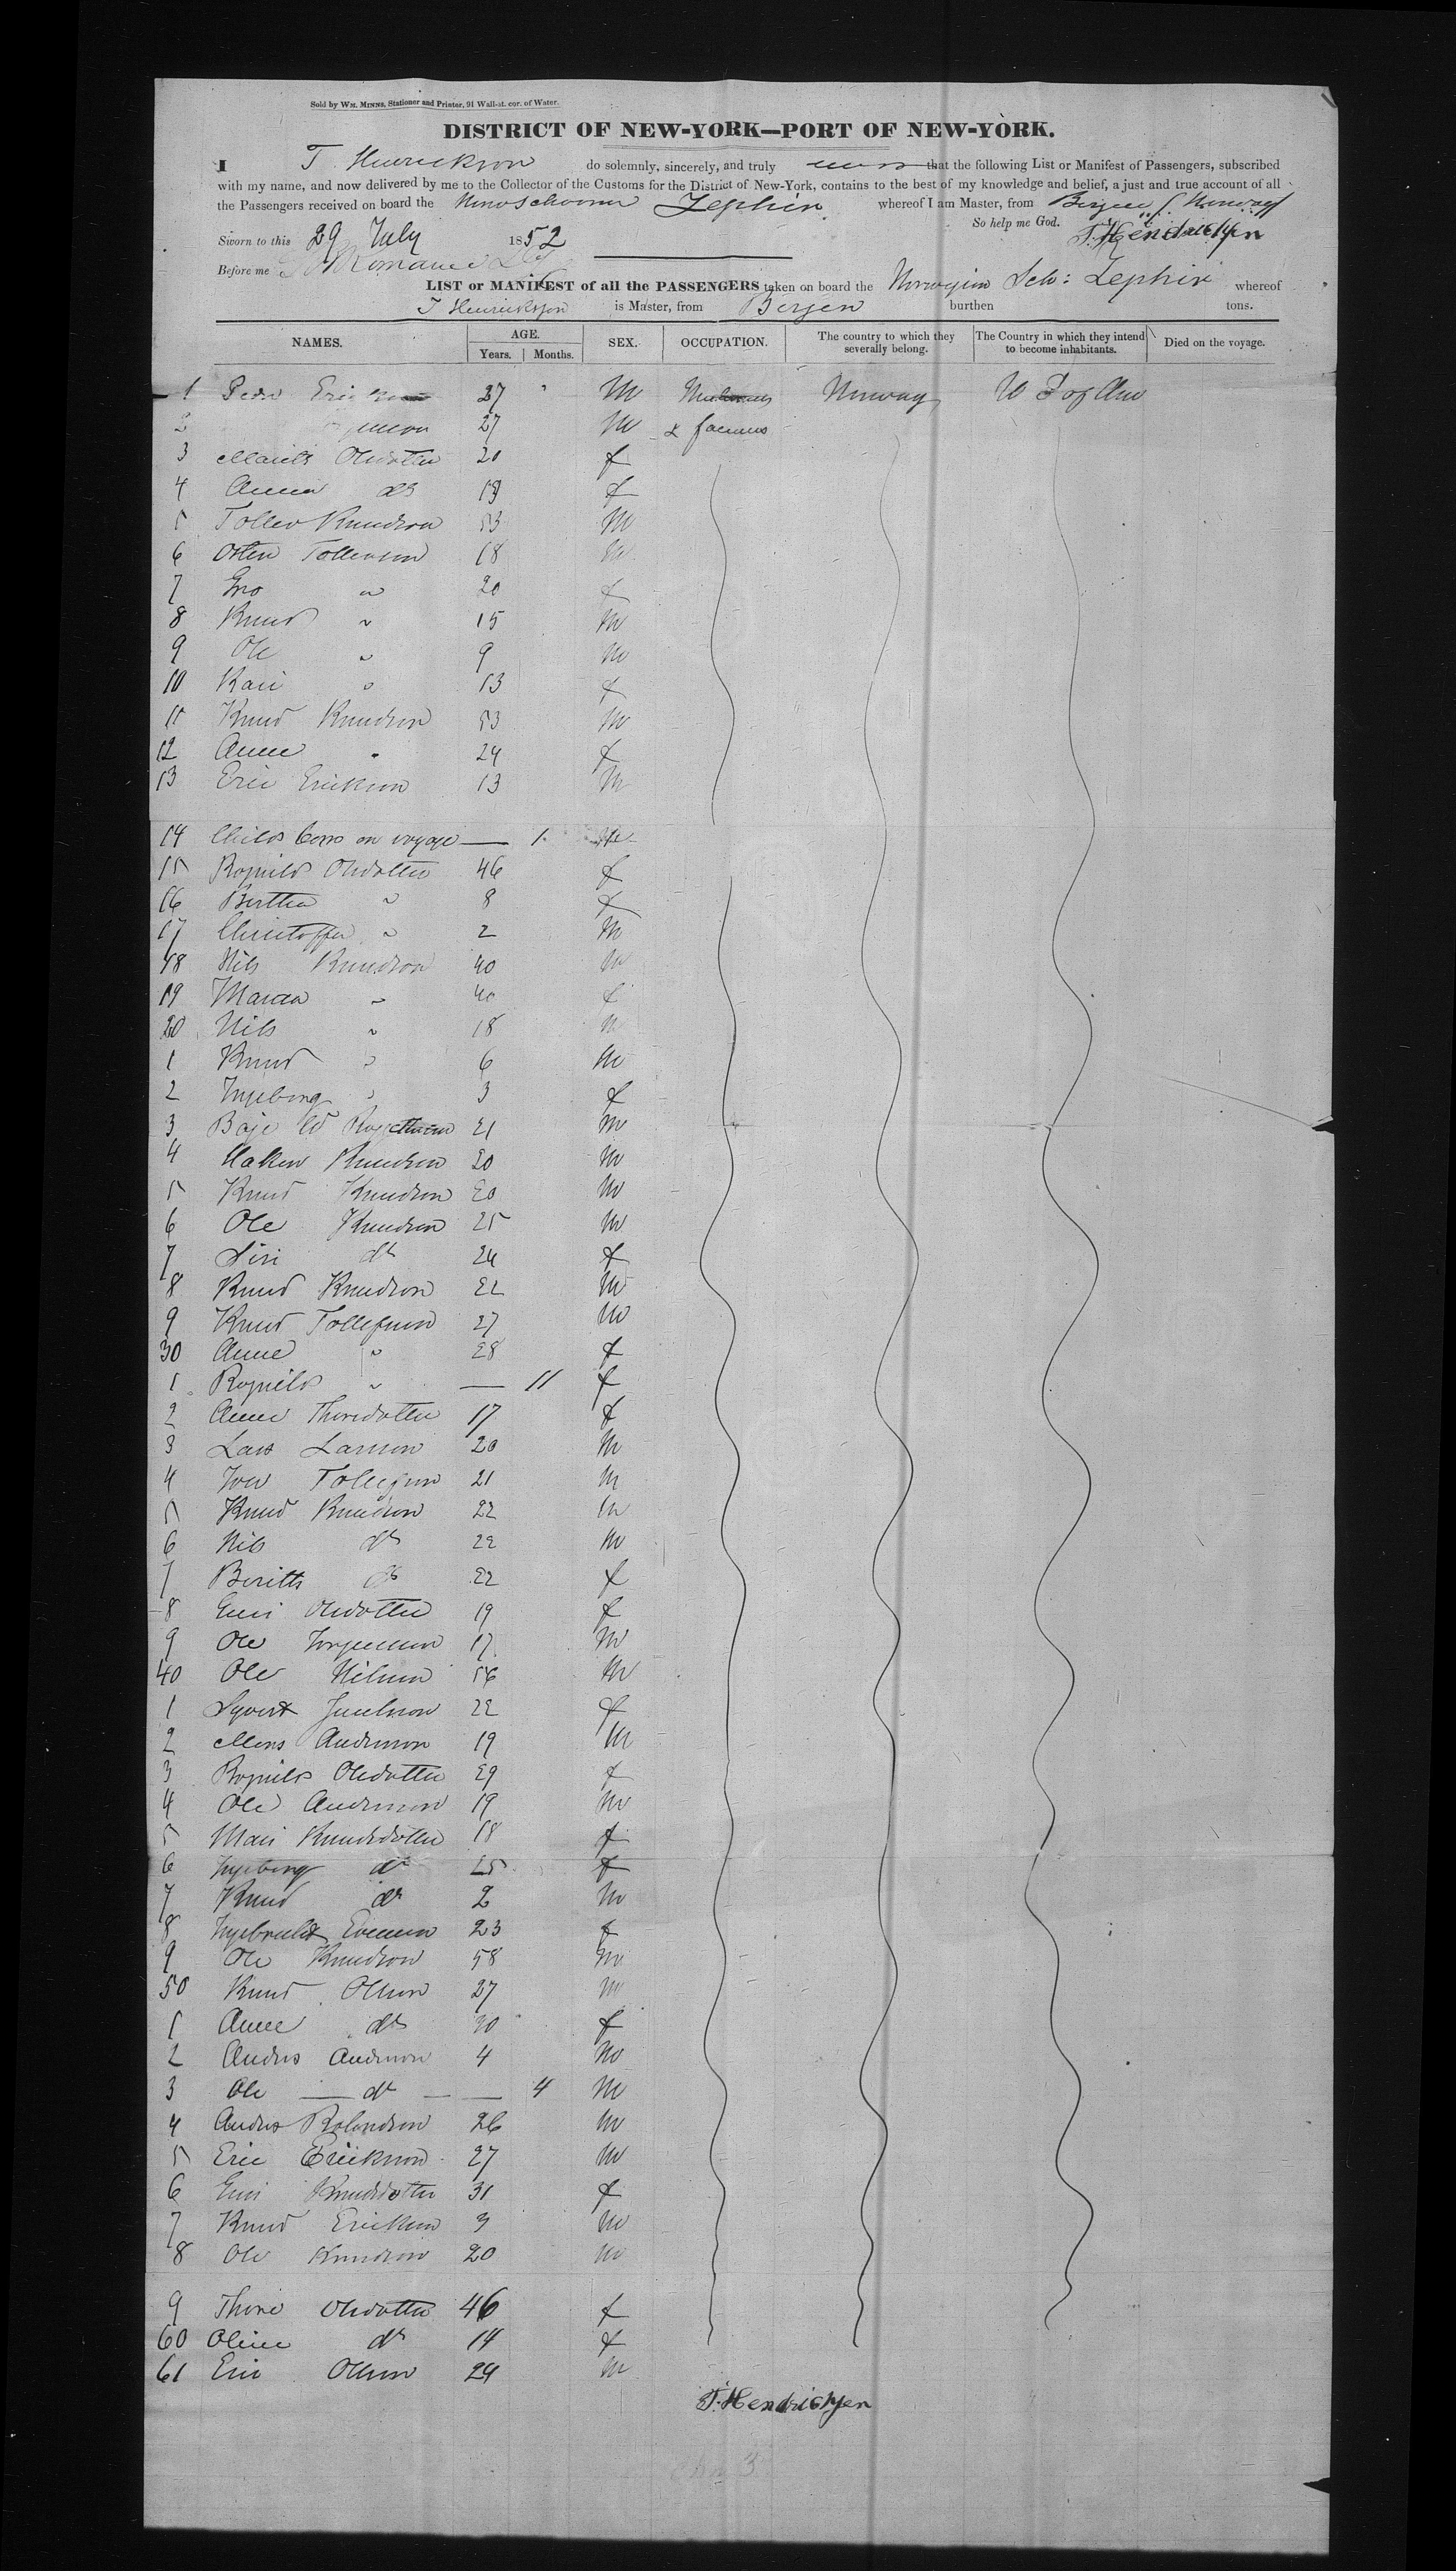 Sold by WM. MINNS, Stationer and Printer, 91 Wall-st. cor. of Water.
DISTRICT OF NEW-YORK—PORT OF NEW-YORK.
I T. Henrickson do solemnly, sincerely, and truly that the following List or Manifest of Passengers, subscribed
with my name, and now delivered by me to the Collector of the Customs for the District of New-York, contains to the best of my knowledge and belief, a just and true account of all
the Passengers received on board the Zephir whereof I am Master, from Bergen Norway
So help me God.
Sworn to this 29 July 1852 T. Hendrichsen
Before me
LIST or MANIFEST of all the PASSENGERS taken on board the Norwegian Sch: Zephir whereof
T Henrickson is Master, from Bergen burthen tons.
NAMES. AGE. SEX. OCCUPATION. The country to which they severally belong. The Country in which they intend to become inhabitants. Died on the voyage.
Years. Months.
1 Peder 27 M Norway U S of Am
2 27 M & farmers
3 Olsdatter 20 f
4 Anna do 19 f
5 Tollev Knudson 53 M
6 Osten Tollevson 18 M
7 Gro " 20 f
8 Knud " 15 M
9 Ole " 9 M
10 Kari " 13 f
11 Knud Knudson 53 M
12 Anne " 24 f
13 Eric Erickson 13 M
14 Child born on voyage — 1
15 Rognild Olsdatter 46 f
16 Berthe " 8 f
17 Christoffer " 2 M
18 Nils Knudson 40 M
19 Maria " 40 f
20 Nils " 18 M
1 Knud " 6 M
2 Ingeborg " 3 f
3 21 M
4 Haken Knudson 20 M
5 Knud Knudson 20 M
6 Ole Knudson 25 M
7 Siri do 24 f
8 Knud Knudson 22 M
9 Knud Tollefson 27 M
30 Anne " 28 f
1 Rognild " — 11 f
2 Anne Thoredatter 17 f
3 Lars Larson 20 M
4 Iver Tollefson 21 M
5 Knud Knudson 22 M
6 Nils do 22 M
7 Beritte do 22 f
8 Guri Olsdatter 19 f
9 Ole 17 M
40 Ole Nilson 56 M
1 22 f
2 Mons Anderson 19 M
3 Rognild Olsdatter 29 f
4 Ole Anderson 19 M
5 Mari Knudsdatter 18 f
6 Ingeborg do 25 f
7 Knud do 2 M
8 23 f
9 Ole Knudson 58 M
50 Knud Olson 27 M
1 Anne do 30 f
2 Andres Anderson 4 M
3 Ole — do — — 4 M
4 Andres 26 M
5 Eric Erickson 27 M
6 Guri Knudsdatter 31 f
7 Knud Erickson 3 M
8 Ole Knudson 20 M
9 Thore Olsdatter 46 f
60 Oline do 14 f
61 Eric Olson 29 M
T. Hendrichsen